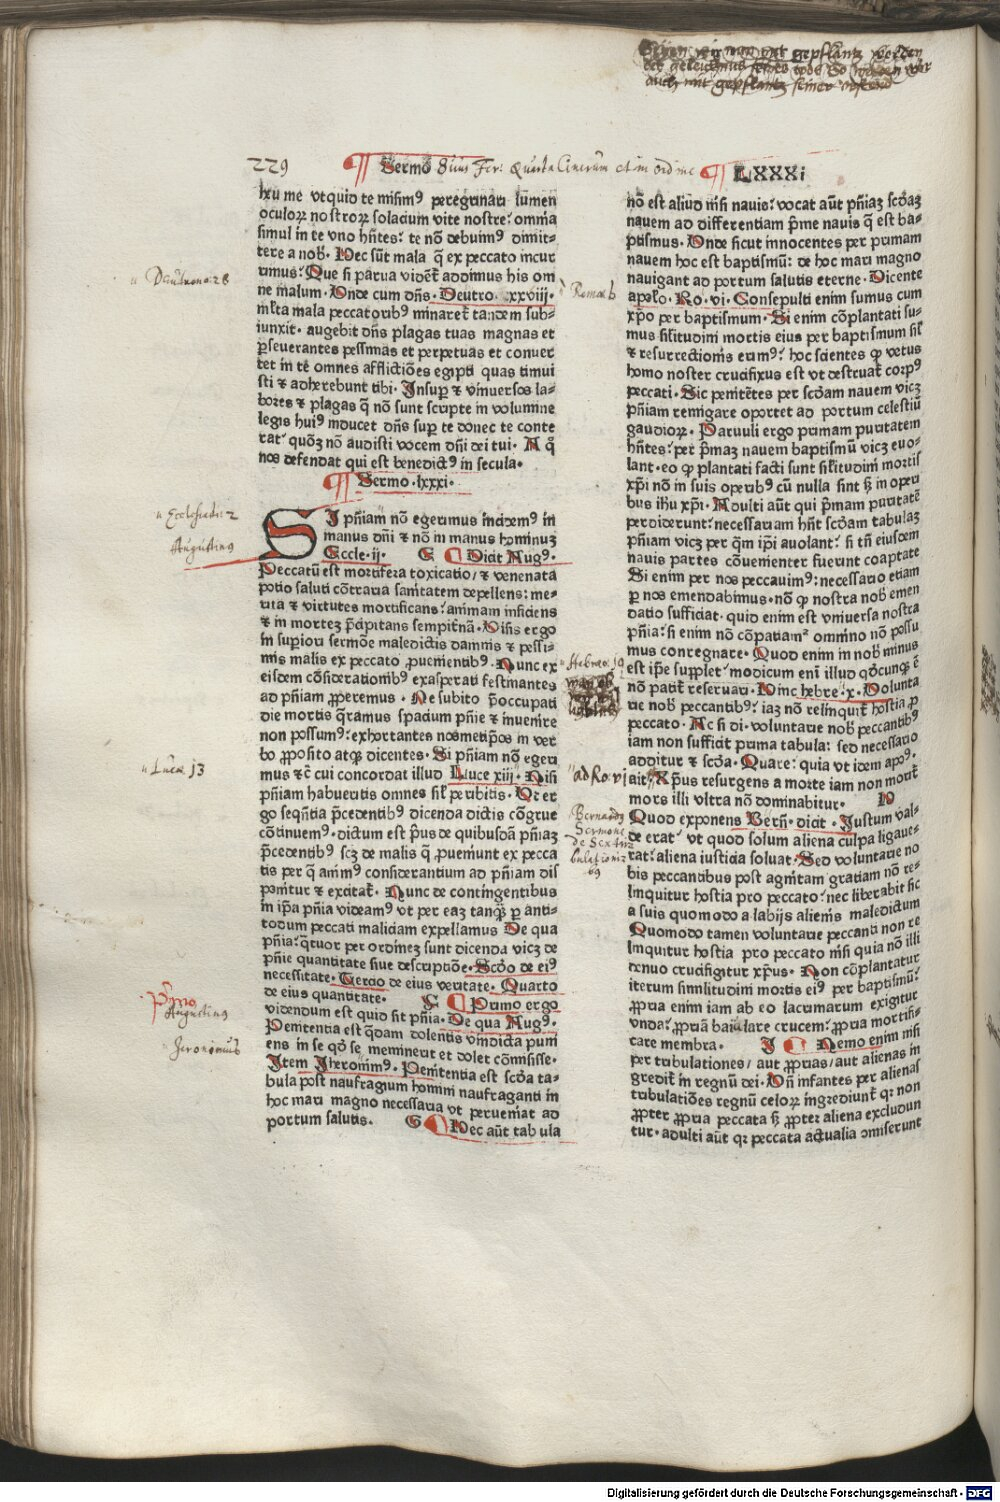 gepflantz worden
der geleichnus seines tods So werden wir
auch mit gepflantz seiner
229
¶ Sermo 8iius Fer: Quarta Cinerum et in ordine ¶ LXXXi
hxu me vtquid te misimꝰ peregrinari lumen
oculoꝝ nostroꝝ solacium vite nostre? omnia
simul in te vno hñtes? te nō debuimꝰ dimit⸗
tere a nob̄. Hec sūt mala q̄ ex peccato incur
rimus? Que si parua vident̄ addimus his om
ne malum. Onde cum dn̄s. Deutro. xxviij.
ml̄ta mala peccatoribꝰ minaret̄ tandem sub⸗
iunxit. augebit dn̄s plagas tuas magnas et
ꝑseuerantes pessimas et perpetuas et conuer
tet in te omnes afflictiōes egipti quas timui
sti ⁊ adherebunt tibi. Insuꝑ ⁊ vniuersos la⸗
bores ⁊ plagas q̄ nō sunt scripte in volumine
legis huiꝰ inducet dn̄s suꝑ te donec te conte
rat? quōꝫ nō audisti vocem dn̄i dei tui. A qͦ
nos defendat qui est benedictꝰ in secula.
¶ Sermo .lxxxi.
SI pn̄iam nō egerimus incidemꝰ in
manus dn̄i ⁊ nō in manus hominuꝫ
Eccle .ij. E ¶ Dicit Augꝰ.
Peccatū est mortifera toxicatio/⁊ venenata
potio saluti cōtraria sanitatem depellens: me⸗
rita ⁊ virtutes mortificans? animam inficiens
⁊ in morteꝫ p̄cipitans sempit̄nā. Visis ergo
in supiori sermōe maledictis damnis ⁊ pessi⸗
mis malis ex peccato ꝓuenientibꝰ. Nunc ex
eisdem cōsiderationibꝰ exasperati festinantes
ad pn̄iam ꝓperemus. Ne subito p̄occupati
die mortis q̄ramus spacium pn̄ie ⁊ inuenire
non possumꝰ? exhortantes nosmetip̄os in ver
bo ꝓposito atqꝫ dicentes. Si pn̄iam nō egeri
mus ⁊c̄ cui concordat illud Luce xiij. Nisi
pn̄iam habueritis omnes sil̄ peribitis. Vt er
go seqn̄tia p̄cedentibꝰ dicenda dictis cōgrue
cōtinuemꝰ. dictum est pͥus de quibusdā pn̄iaꝫ
p̄cedentibꝰ scꝫ de malis q̄ ꝓueniunt ex pecca
tis per q̄ animꝰ considerantium ad pn̄iam dis
ponitur ⁊ excitat̄. Nunc de contingentibus
in ip̄a pn̄ia videamꝰ vt per eaꝫ tanqꝫ̄ ꝑ anti⸗
todum peccati maliciam expellamus De qua
pn̄ia? qͣtuor per ordineꝫ sunt dicenda vicꝫ de
pn̄ie quantitate siue descriptiōe. Scḋo de eiꝰ
necessitate. Tercio de eius veritate. Quarto
de eius quantitate. ¶ Primo ergo
videndum est quid sit pn̄ia. De qua Augꝰ.
Penitentia est qᷓdam dolentis vindicta puni
ens in se qd̓ se meminerit et dolet cōmisisse.
Item Iheronimꝰ. Penitentia est scḋa ta⸗
bula post naufragium homini naufraganti in
hoc mari magno necessaria vt perueniat ad
portum salutis. G ¶ Nec aūt tabula
nō est aliud nisi nauis? vocat aūt pn̄iaꝫ scḋaꝫ
nauem ad differentiam pͥme nauis q̄ est ba⸗
ptismus. Onde sicut innocentes per primam
nauem hoc est baptismū: de hoc mari magno
nauigant ad portum salutis eterne. Dicente
apoſto. Ro. vi. Consepulti enim sumus cum
xp̄o per baptismum. Si enim cōplantati su⸗
mus sil̄itudini mortis eius per baptismum sil̄
⁊ resurrectionis erimꝰ? hoc scientes ꝙ vetus
homo noster crucifixus est vt destruat̄ corpꝰ
peccati. Sic penitētes per scḋam nauem vicꝫ
pn̄iam remigare oportet ad portum celestiū
gaudioꝝ. Paruuli ergo primam puritatem
hn̄tes? per pͥmaꝫ nauem baptismū vicꝫ euo⸗
lant. eo ꝙ plantati facti sunt sil̄itudini mortis
xp̄i nō in suis operibꝰ cū nulla sint sꝫ in operi
bus ihū xp̄i. Adulti aūt qui pͥmam puritatē
perdiderunt? necessariam hn̄t scḋam tabulaꝫ
pn̄iam vicꝫ per q̄m ip̄i auolant? si tn̄ eiusdem
nauis partes cōuenienter fuerint coaptate
Si enim per nos peccauimꝰ: necessario etiam
ꝑ nos emendabimus. nō ꝙ nostra nob̄ emen
datio sufficiat. quid enim est vniuersa nostra
pn̄ia? si enim nō cōpatiamᷣ omnino nō possu
mus conregnare. Quod enim in nob̄ minus
est ip̄e supplet̄ modicum eni illud qd̓cunqꝫ ē
nō patit̄ reseruari. Hinc hebre. x. Volunta
rie nob̄ peccantibꝰ? iaꝫ nō relinquit̄ hostia ꝓ
peccato. Ac si di. voluntarie nob̄ peccantibꝰ
iam non sufficit prima tabula: sed necessario
additur ⁊ scḋa. Quare: quia vt idem apoꝰ.
ait? Xp̄us resurgens a morte iam non morit̄
mors illi vltra nō dominabitur. H
Quod exponens Bern̄. dicit. Iustum val⸗
de erat? vt quod solum aliena culpa ligaue⸗
rat? aliena iusticia soluat. Sed voluntarie no
bis peccantibus post agnitam gratiam nō re⸗
linquitur hostia pro peccato? nec liberabit sic
a suis quomodo a labijs alienis maledictum
Quomodo tamen voluntarie peccanti non re
linquitur hostia pro peccato nisi quia nō illi
denuo crucifigitur xp̄us. Non cōplantatur
iterum similitudini mortis eiꝰ per baptismū?
ꝓpria enim iam ab eo lacrimarum exigitur
vnda? ꝓpriā baiulare crucem? ꝓpria mortifi⸗
care membra. I ¶ Nemo enim nisi
per tribulationes/aut ꝓprias/aut alienas in
gredit̄ in regnū dei. Vn̄ infantes per alienas
tribulatiōes regnū celoꝝ ingrediunt̄ qꝛ non
ꝓpter ꝓpria peccata sꝫ ꝓpter aliena excludun
tur. adulti aūt qꝛ peccata actualia ꝯmiserunt
Deutrono: 28
Ecclesiastici 2
Augustinus
Lucæ 13
Primo
Augustinus
Jeronimus
Roma: 6
Hebræ: 10
ad Ro: vi
Bernardꝰ
Sermone
de
69
Digitalisierung gefördert durch die Deutsche Forschungsgemeinschaft - DFG